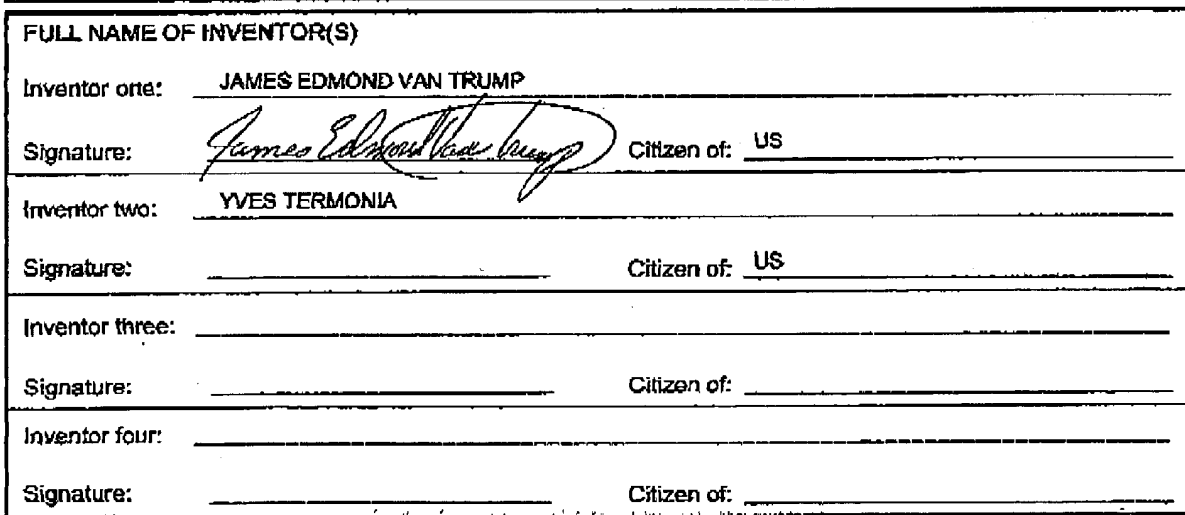 FULL NAME OF INVENTOR(S)
Inventor one: JAMES EDMOND VAN TRUMP
Signature: James Edmond Van Trump Citizen of: US
Inventor two: YVES TERMONIA
Signature: Citizen of: US
Inventor three:
Signature: Citizen of:
Inventor four:
Signature: Citizen of: